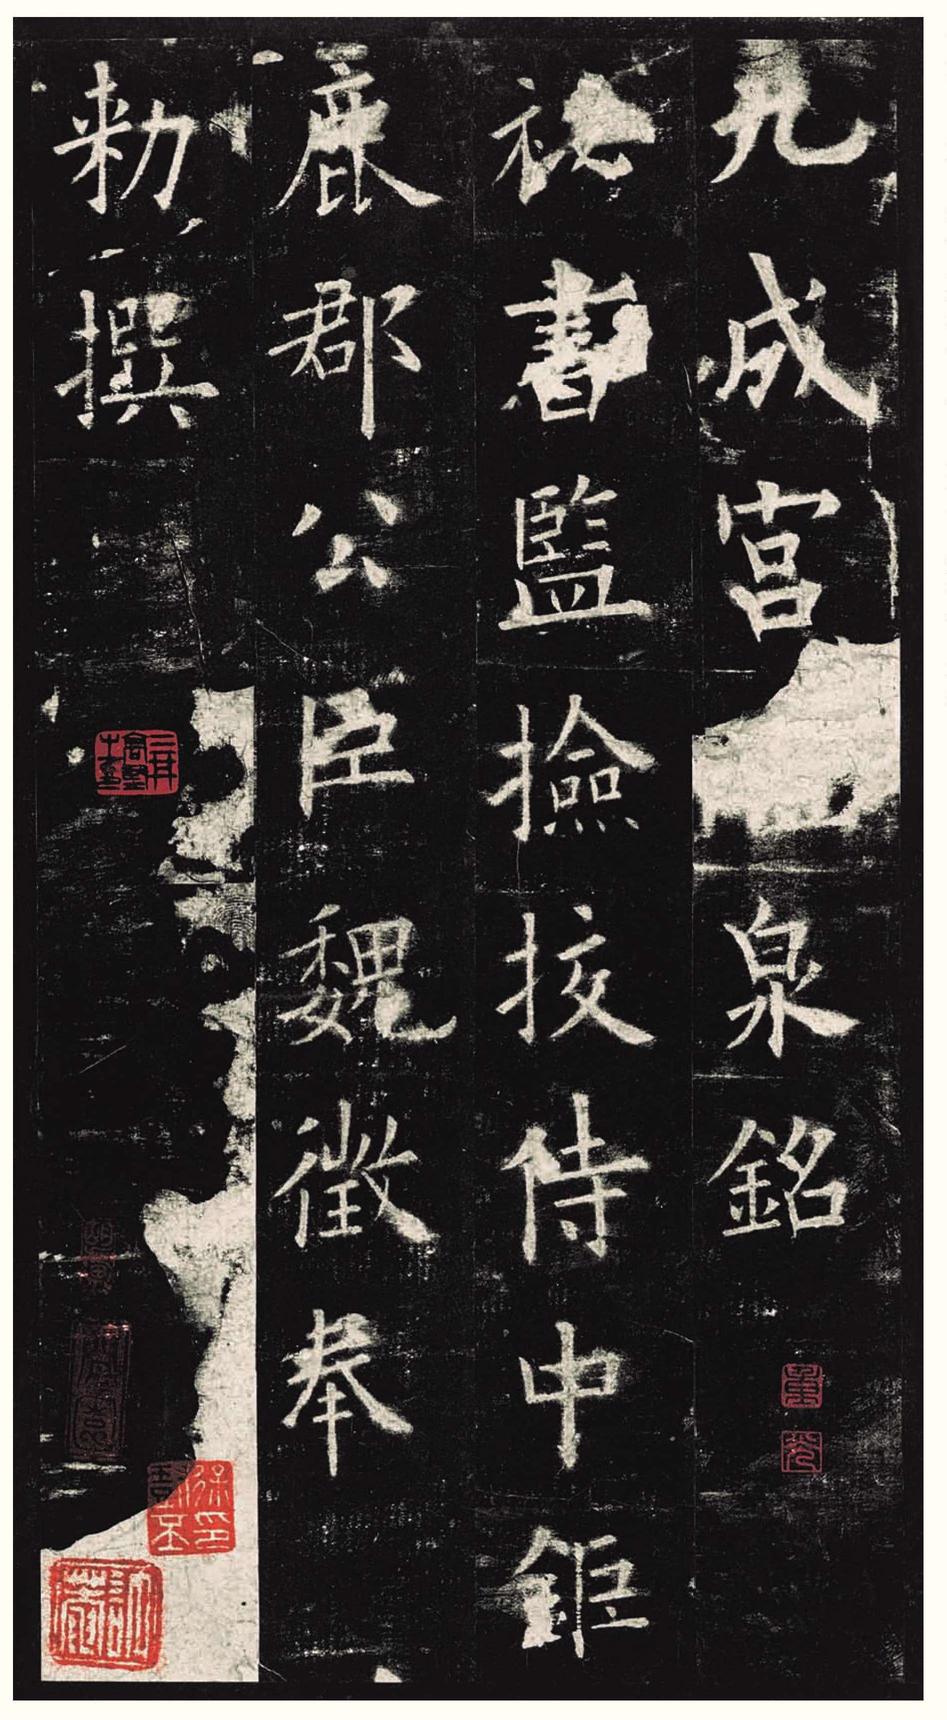 九成宮泉銘
祕書監撿挍侍中鉅
鹿郡公臣魏徵奉
勅撰